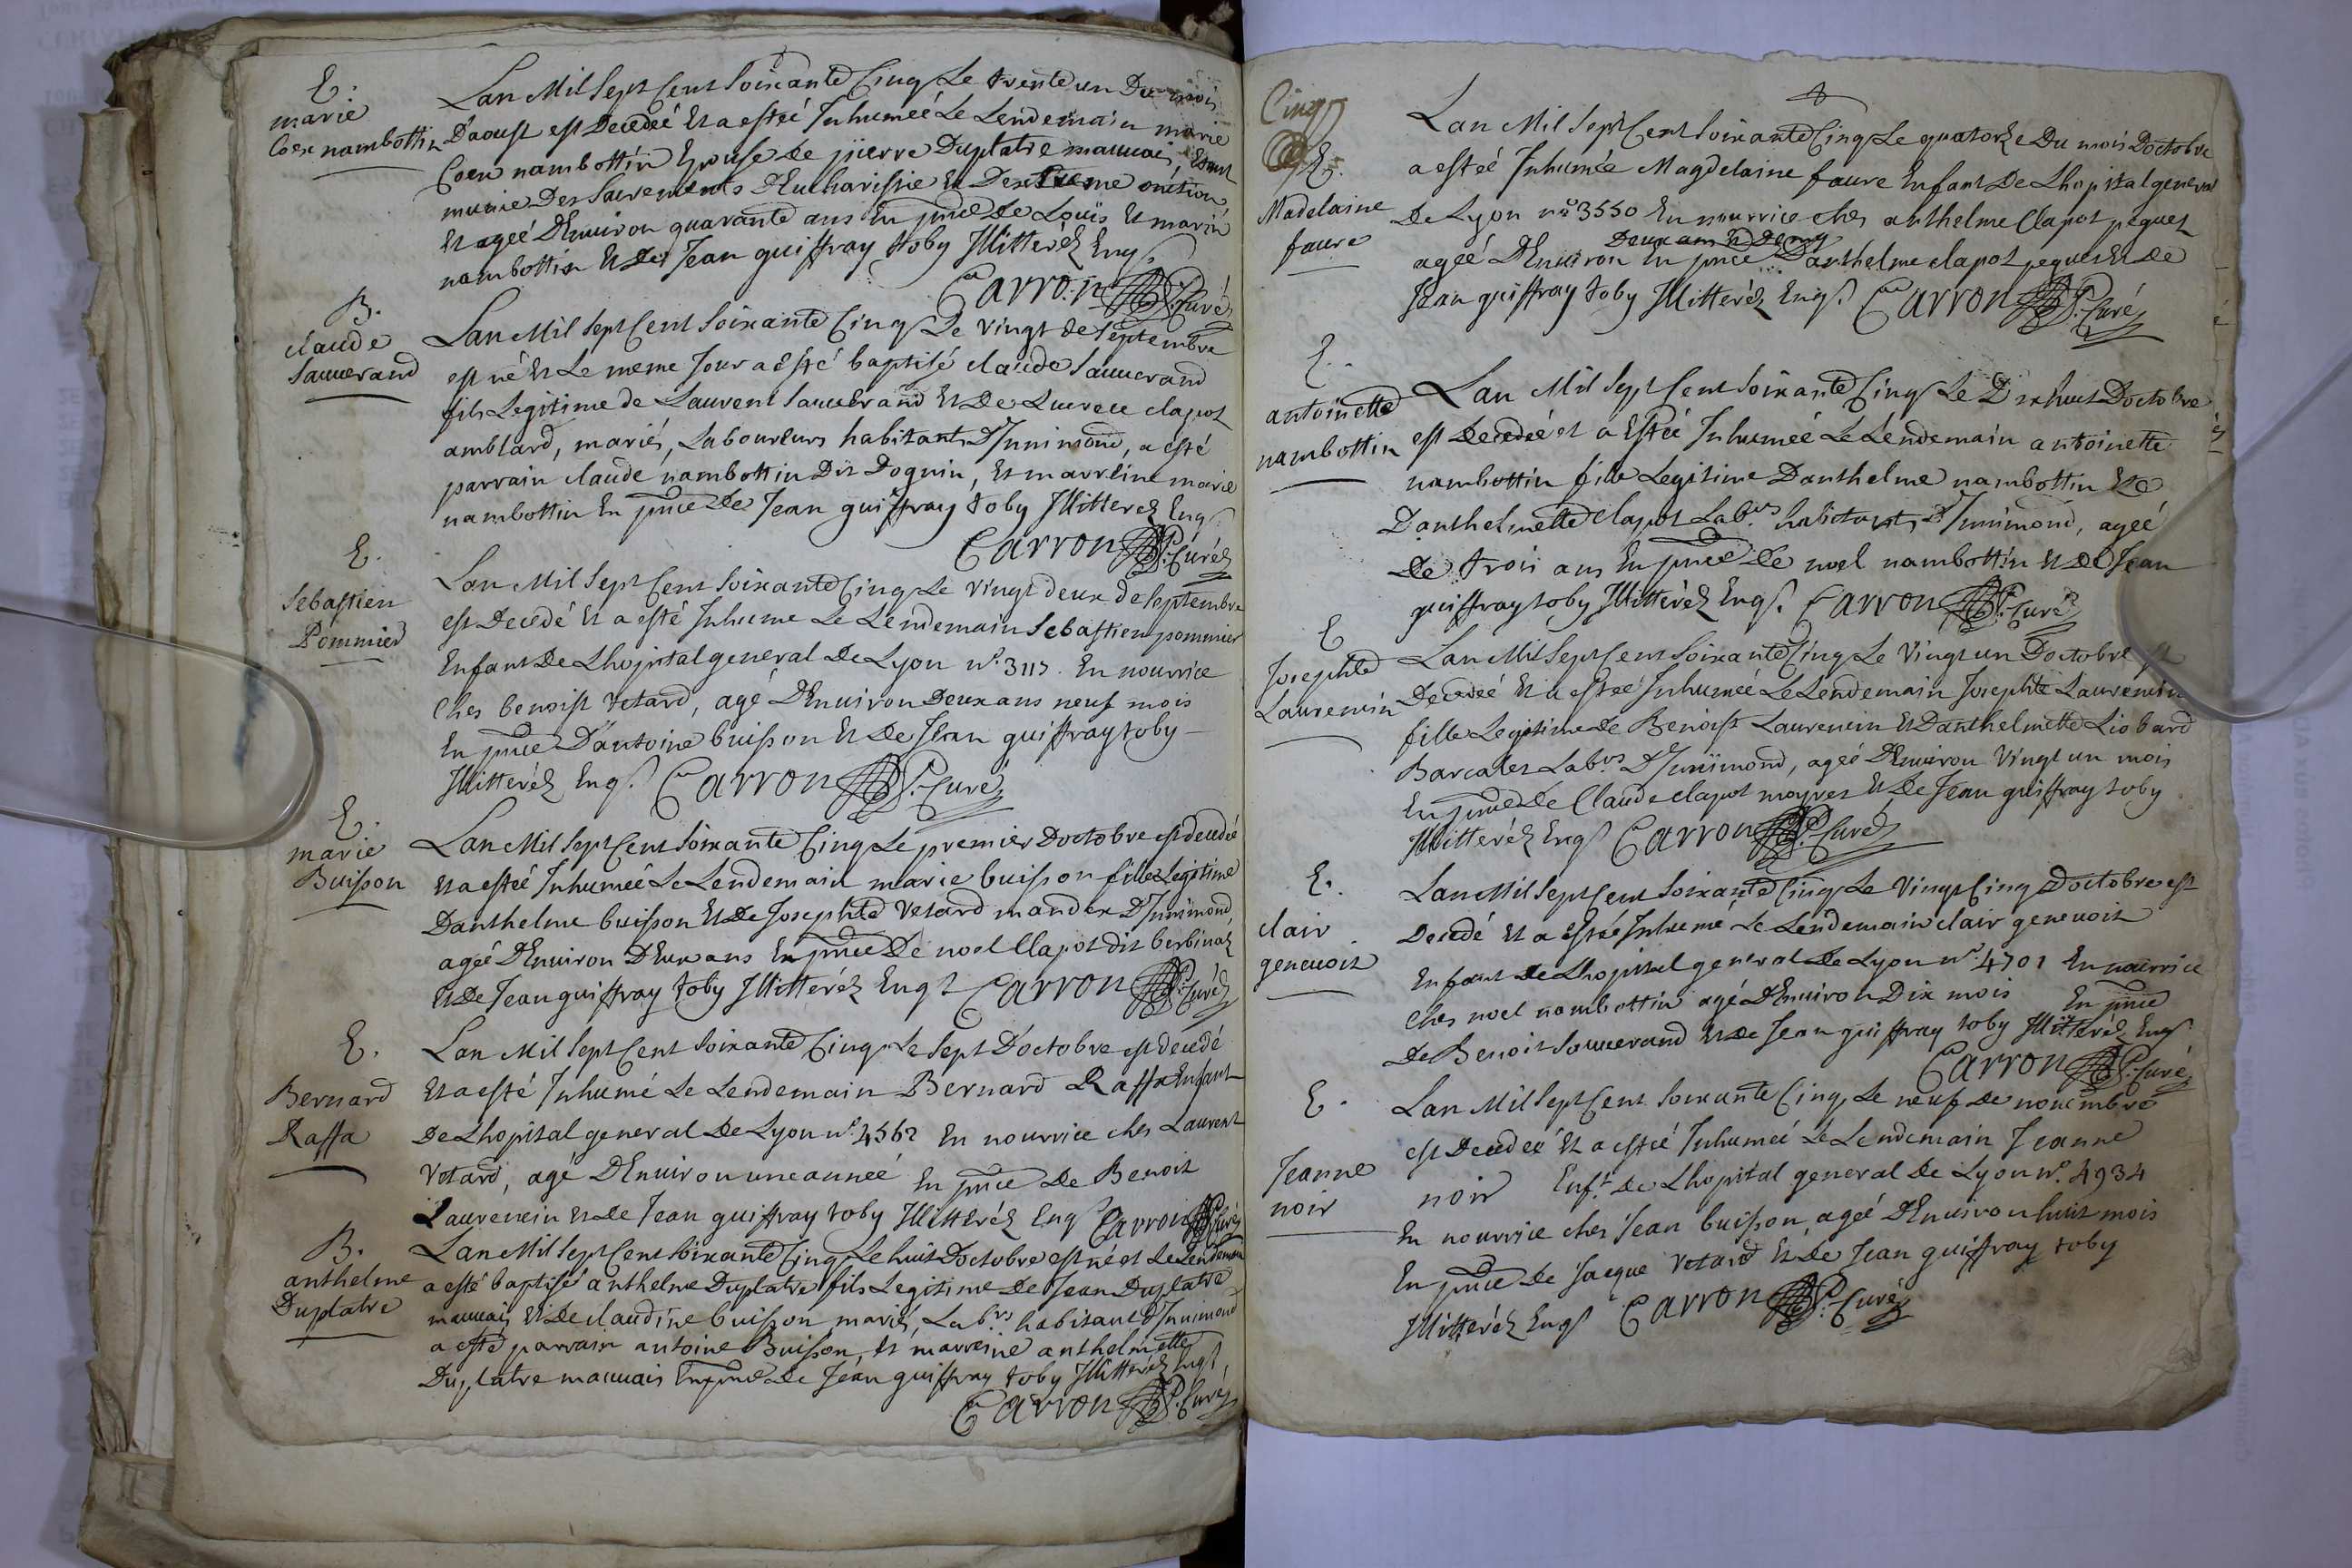 E.
marie
Coen nambottin
Lan Mil Sept Cent Soixante Cinq Le trente un Du mois
D'aoust est Decedeé Et a esteé Inhumeé Le Lendemain marie
Coen nambottin Epouse De pierre Duplatre mauuais, Etant
munie Des Sacrements D'Eucharistie Et D'extreme onction
Et ageé D'Enuiron quarante ans En pnce De Louis Et marin
nambottin Et De Jean guiffray toby Illitteréz Enqs
Carron Curé
B.
claude
Sauuerand
Lan Mil Sept Cent Soixante Cinq Le Vingt de Septembre
est né Et Le meme Jour a esté baptisé claude Sauuerand
fils Legitime de Laurent Sauuerand Et De Lucrece clapot
amblard, mariés, Laboureurs habitants D'Innimond, a esté
parrain claude nambottin Dit Doguin, Et marreine marie
nambottin En pnce De Jean guiffray toby Illitterez Enqs
Carron Curé
E.
Sebastien
Pommier
Lan Mil Sept Cent Soixante Cinq Le Vingt deux de Septembre
est Decedé Et a esté Inhume Le Lendemain Sebastien pommier
Enfant De Lhopital general De Lyon n.° 3117. En nourrice
Ches benoist Vetard, agé D'Enuiron Deux ans neuf mois
En pnce D'antoine buisson Et De Jean guiffray toby
Illitteréz Enqs. Carron Curé
E.
marie
Buisson
Lan Mil Sept Cent Soixante Cinq Le premier D'octobre est decedeé
Et a esteé Inhumeé Le Lendemain marie buisson fille Legitime
D'anthelme buisson Et De Josephte Vetard mandex D'Innimond
ageé D'Enuiron Deux ans En pnce De noel Clapot dit berbinat
Et De Jean guiffray toby Illitteréz Enqs Carron Curé
E.
Bernard
Raffa
Lan Mil Sept Cent Soixante Cinq Le Sept D'octobre est decedé
Et a esté Inhumé Le Lendemain Bernard Raffa Enfant
De Lhopital general De Lyon n.° 4562 En nourrice ches Laurent
Vetard, agé D'Enuiron une anneé En pnce De Benoit
Laurencin Et de Jean guiffray toby Illitteréz Enqs Carron Curé
B.
anthelme
Duplatre
Lan Mil Sept Cent Soixante Cinq Le huit D'octobre est né et Le Lendemain
a esté baptisé anthelme Duplatre fils Legitime De Jean Duplatre
mauuais Et De claudine buisson mariés, Lab.rs habitant D'Innimond
a esté parrain antoine Buisson, Et marreine anthelmette
Duplatre mauuais En pnce De Jean guiffray toby Illitteréz Enqs,
Carron Curé
Cinq
E.
Madelaine
faure
Lan Mil Sept Cent Soixante Cinq Le quatorze Du mois D'octobre
a esteé Inhumée Magdelaine faure Enfant De Lhopital general
De Lyon n.° 3550 En nourrice ches anthelme Clapot peguet
Deux ans Et Demy
ageé D'Enuiron En pnce D'anthelme clapot peguet Et De
Jean guiffray toby Illitteréz Enqs. Carron Curé
E.
antoinette
nambottin
Lan Mil Sept Cent Soixante Cinq Le Dix huit D'octobre
est Decedeé et a Esteé Inhumeé Le Lendemain antoinette
nambottin fille Legitime D'anthelme nambottin Et
D'anthelmette clapot Lab.rs habitants D'Innimond, ageé
De trois ans En pnce De noel nambottin Et De Jean
guiffray toby Illitteréz Enqs. Carron Curé
E
Josephte
Laurencin
Lan Mil Sept Cent Soixante Cinq Le Vingt un D'octobre est
Decedeé Et a esteé Inhumeé Le Lendemain Josephte Laurencin
fille Legitime De Benoist Laurencin Et D'anthelmette Liobard
Barcates Lab.rs D'Innimond, ageé D'Enuiron Vingt un mois
En pnce De Claude clapot moyret Et De Jean guiffray toby
Illitteréz Enqs Carron Curé
E.
clair
geneuoit
Lan Mil Sept Cent Soixante Cinq Le Vingt Cinq D'octobre est
Decedé Et a esté Inhumé Le Lendemain clair geneuoit
Enfant de Lhopital general De Lyon n.° 4701 En nourrice
Ches noel nambottin agé D'Enuiron Dix mois En pnce
De Benoit Sauuerand Et De Jean guiffray toby Illitteréz Enqs
Carron Curé
E.
Jeanne
noir
Lan Mil Sept Cent Soixante Cinq Le neuf de nouembre
est Decedeé Et a esteé Inhumeé Le Lendemain Jeanne
noir Enf.t De Lhopital general De Lyon n.° 4934
En nourrice ches Jean buisson, ageé D'Enuiron huit mois
En pnce De Jacque Vetard Et De Jean guiffray toby
Illitteréz Enqs Carron Curé